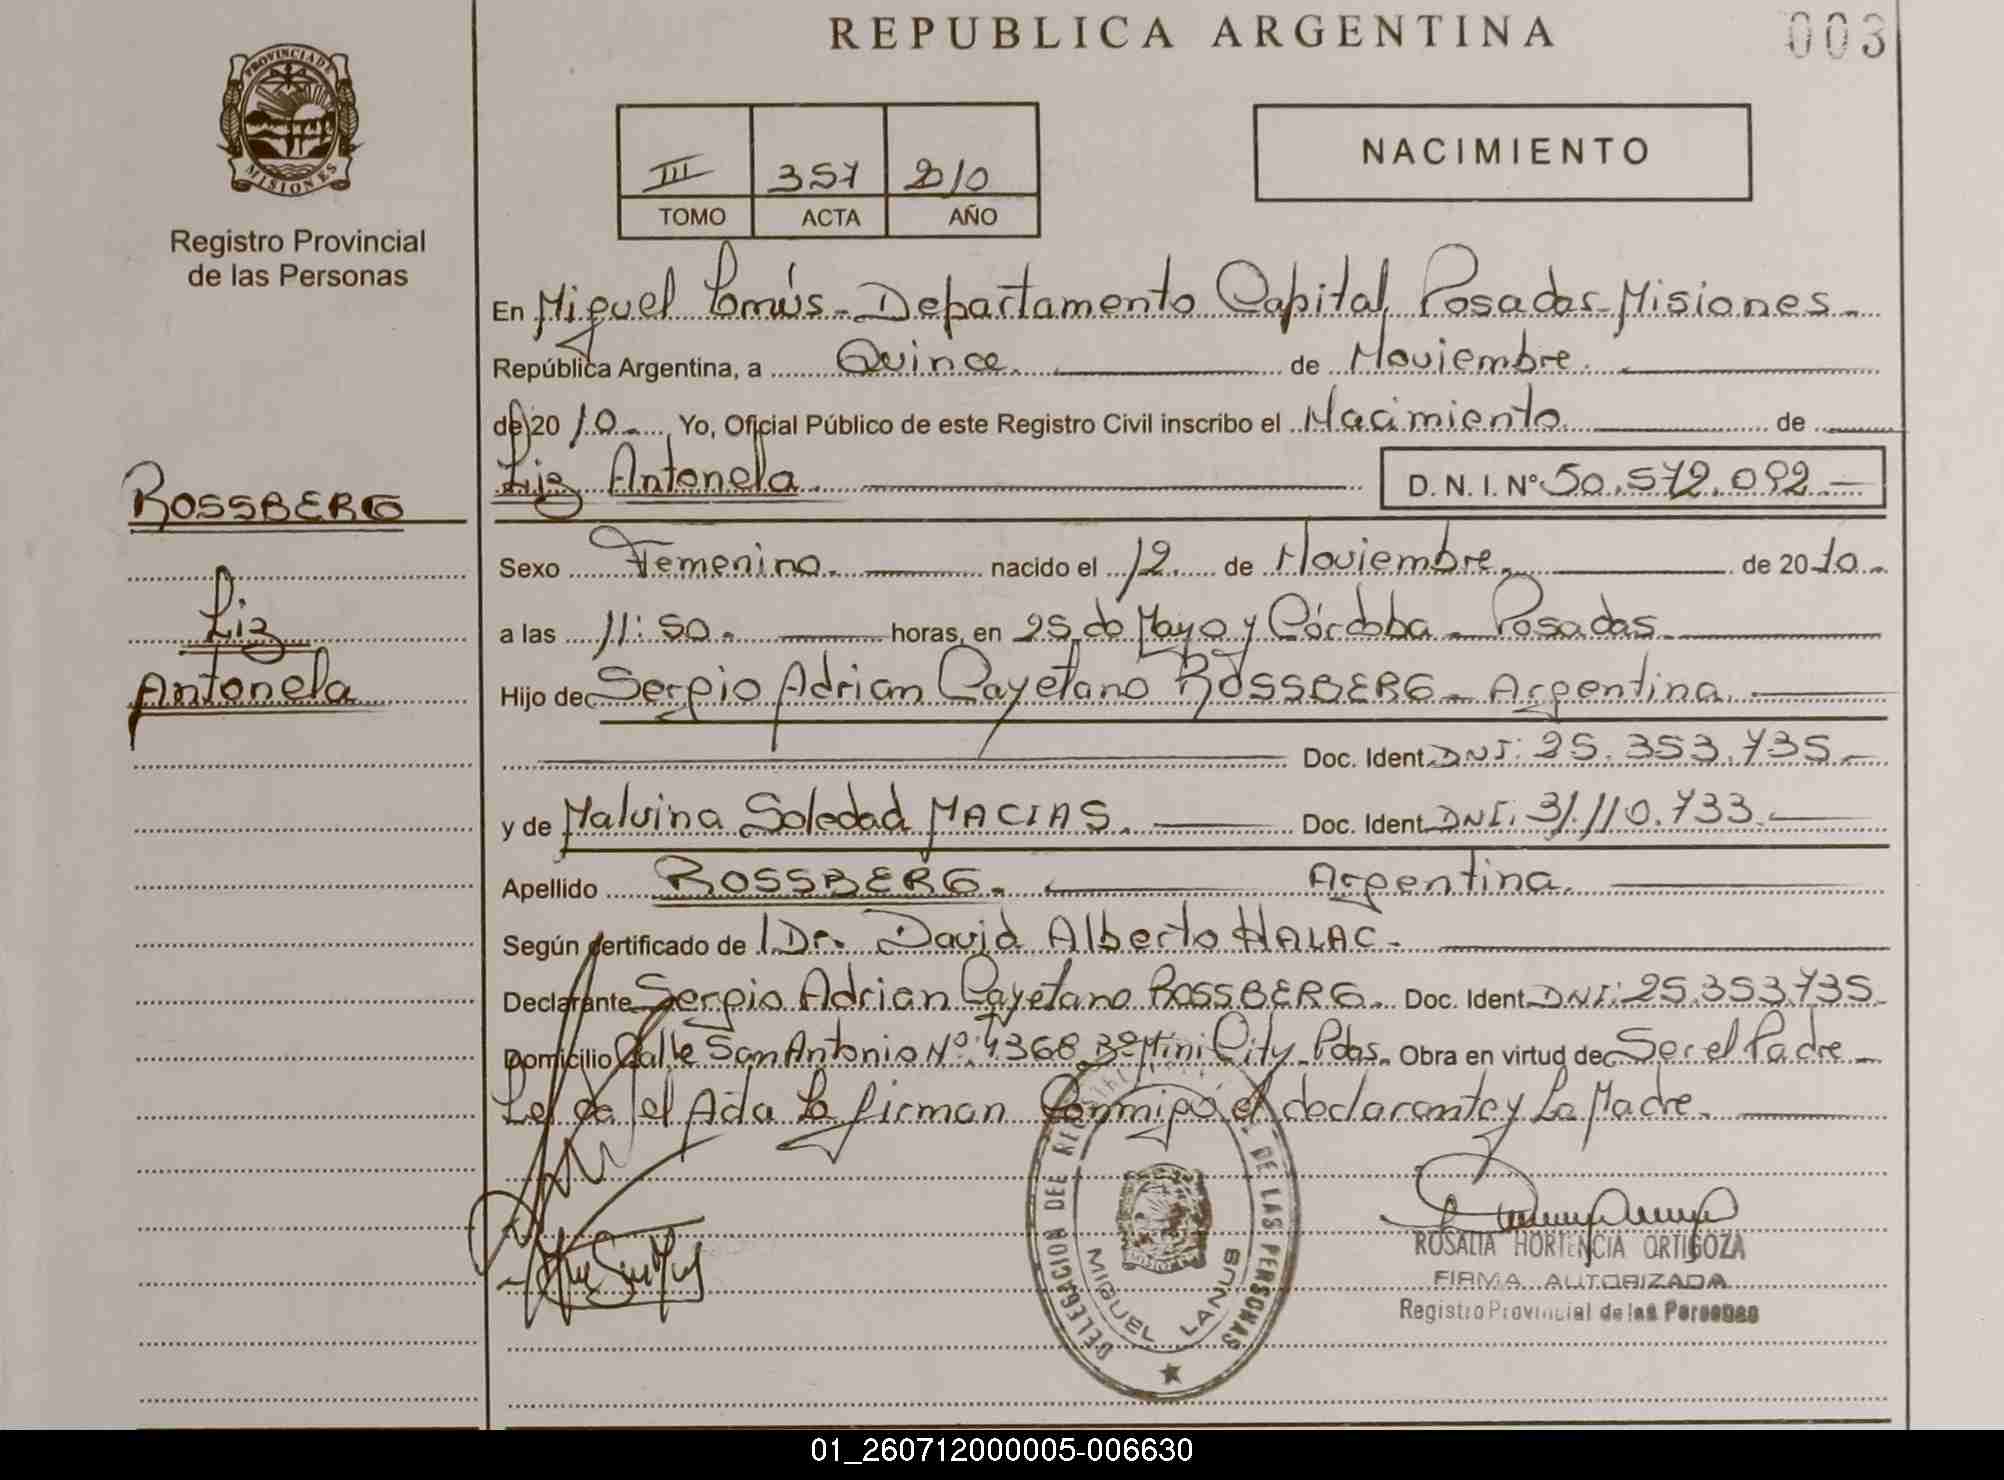 REPUBLICA ARGENTINA
003
PROVINCIA DE
MISIONES
Registro Provincial
de las Personas
III 357 2010
TOMO ACTA AÑO
NACIMIENTO
En Miguel Lanús - Departamento Capital, Posadas - Misiones -
República Argentina, a Quince de Noviembre.
de 20 10. Yo, Oficial Público de este Registro Civil inscribo el Nacimiento de
Liz Antonela. D. N. I. Nº 50.572.092 -
ROSSBERG
Liz
Antonela
Sexo Femenino. nacido el 12 de Noviembre. de 20 10.
a las 11:50. horas, en 25 de Mayo y Córdoba - Posadas.
Hijo de Sergio Adrian Cayetano ROSSBERG - Argentina.
Doc. Ident. DNI: 25.353.735.-
y de Malvina Soledad MACIAS. Doc. Ident. DNI: 31.110.733.
Apellido ROSSBERG. Argentina.
Según certificado de Dr. David Alberto HALAC -
Declarante Sergio Adrian Cayetano ROSSBERG. Doc. Ident. DNI: 25.353.735
Domicilio Calle San Antonio Nº 4368 Bº Mini City - Pdas. Obra en virtud de Ser el Padre -
Leída el Acta La firman Conmigo el declarante y La Madre.
DELEGACION DEL REGISTRO DE LAS PERSONAS
MIGUEL LANUS
ROSALIA HORTENCIA ORTIGOZA
FIRMA AUTORIZADA
Registro Provincial de las Personas
01_260712000005-006630